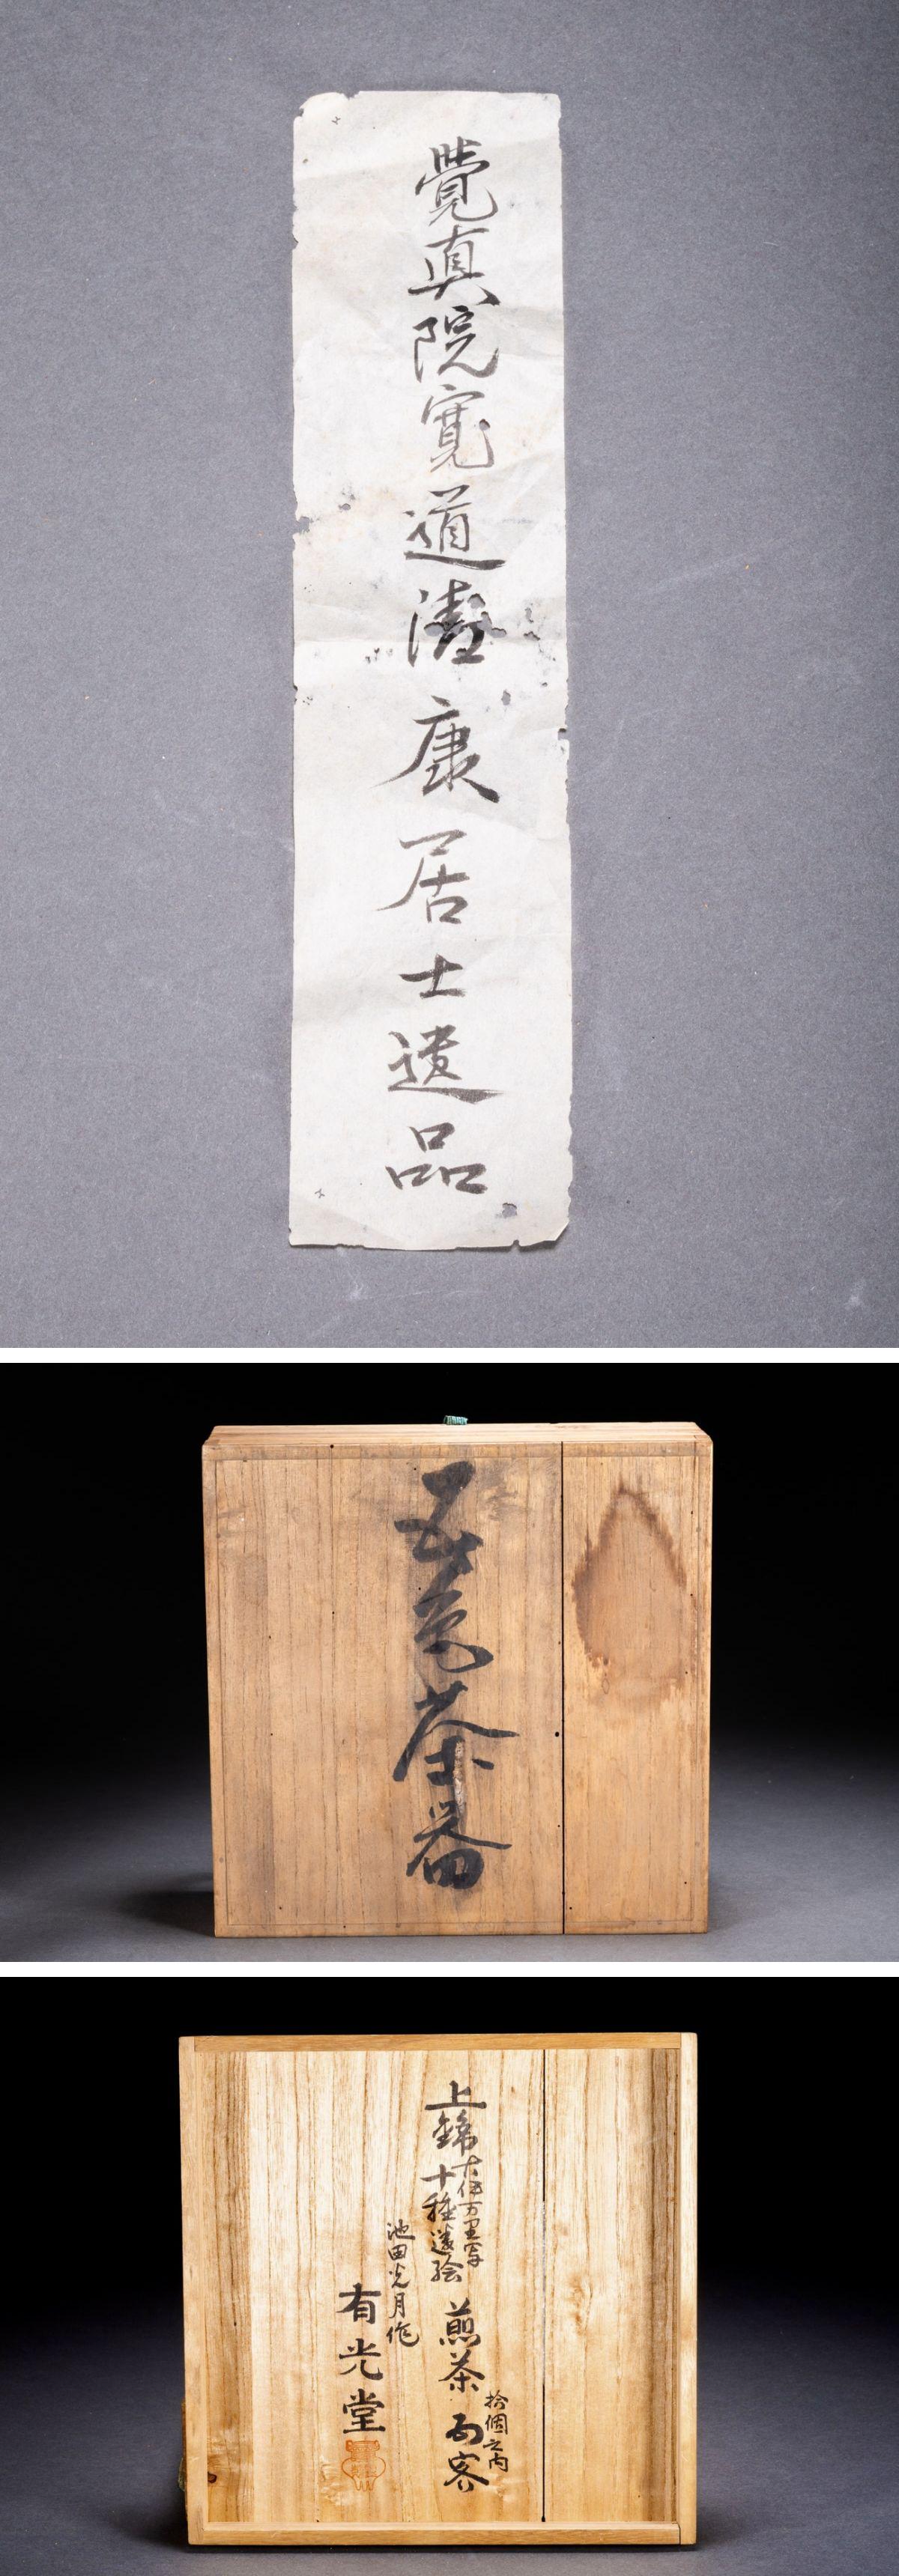 覺真院寛道濤康居士遺品
五色茶器
拾個之内
古伊万里写
上錦十種透絵 煎茶 五客
池田光月作
有光堂